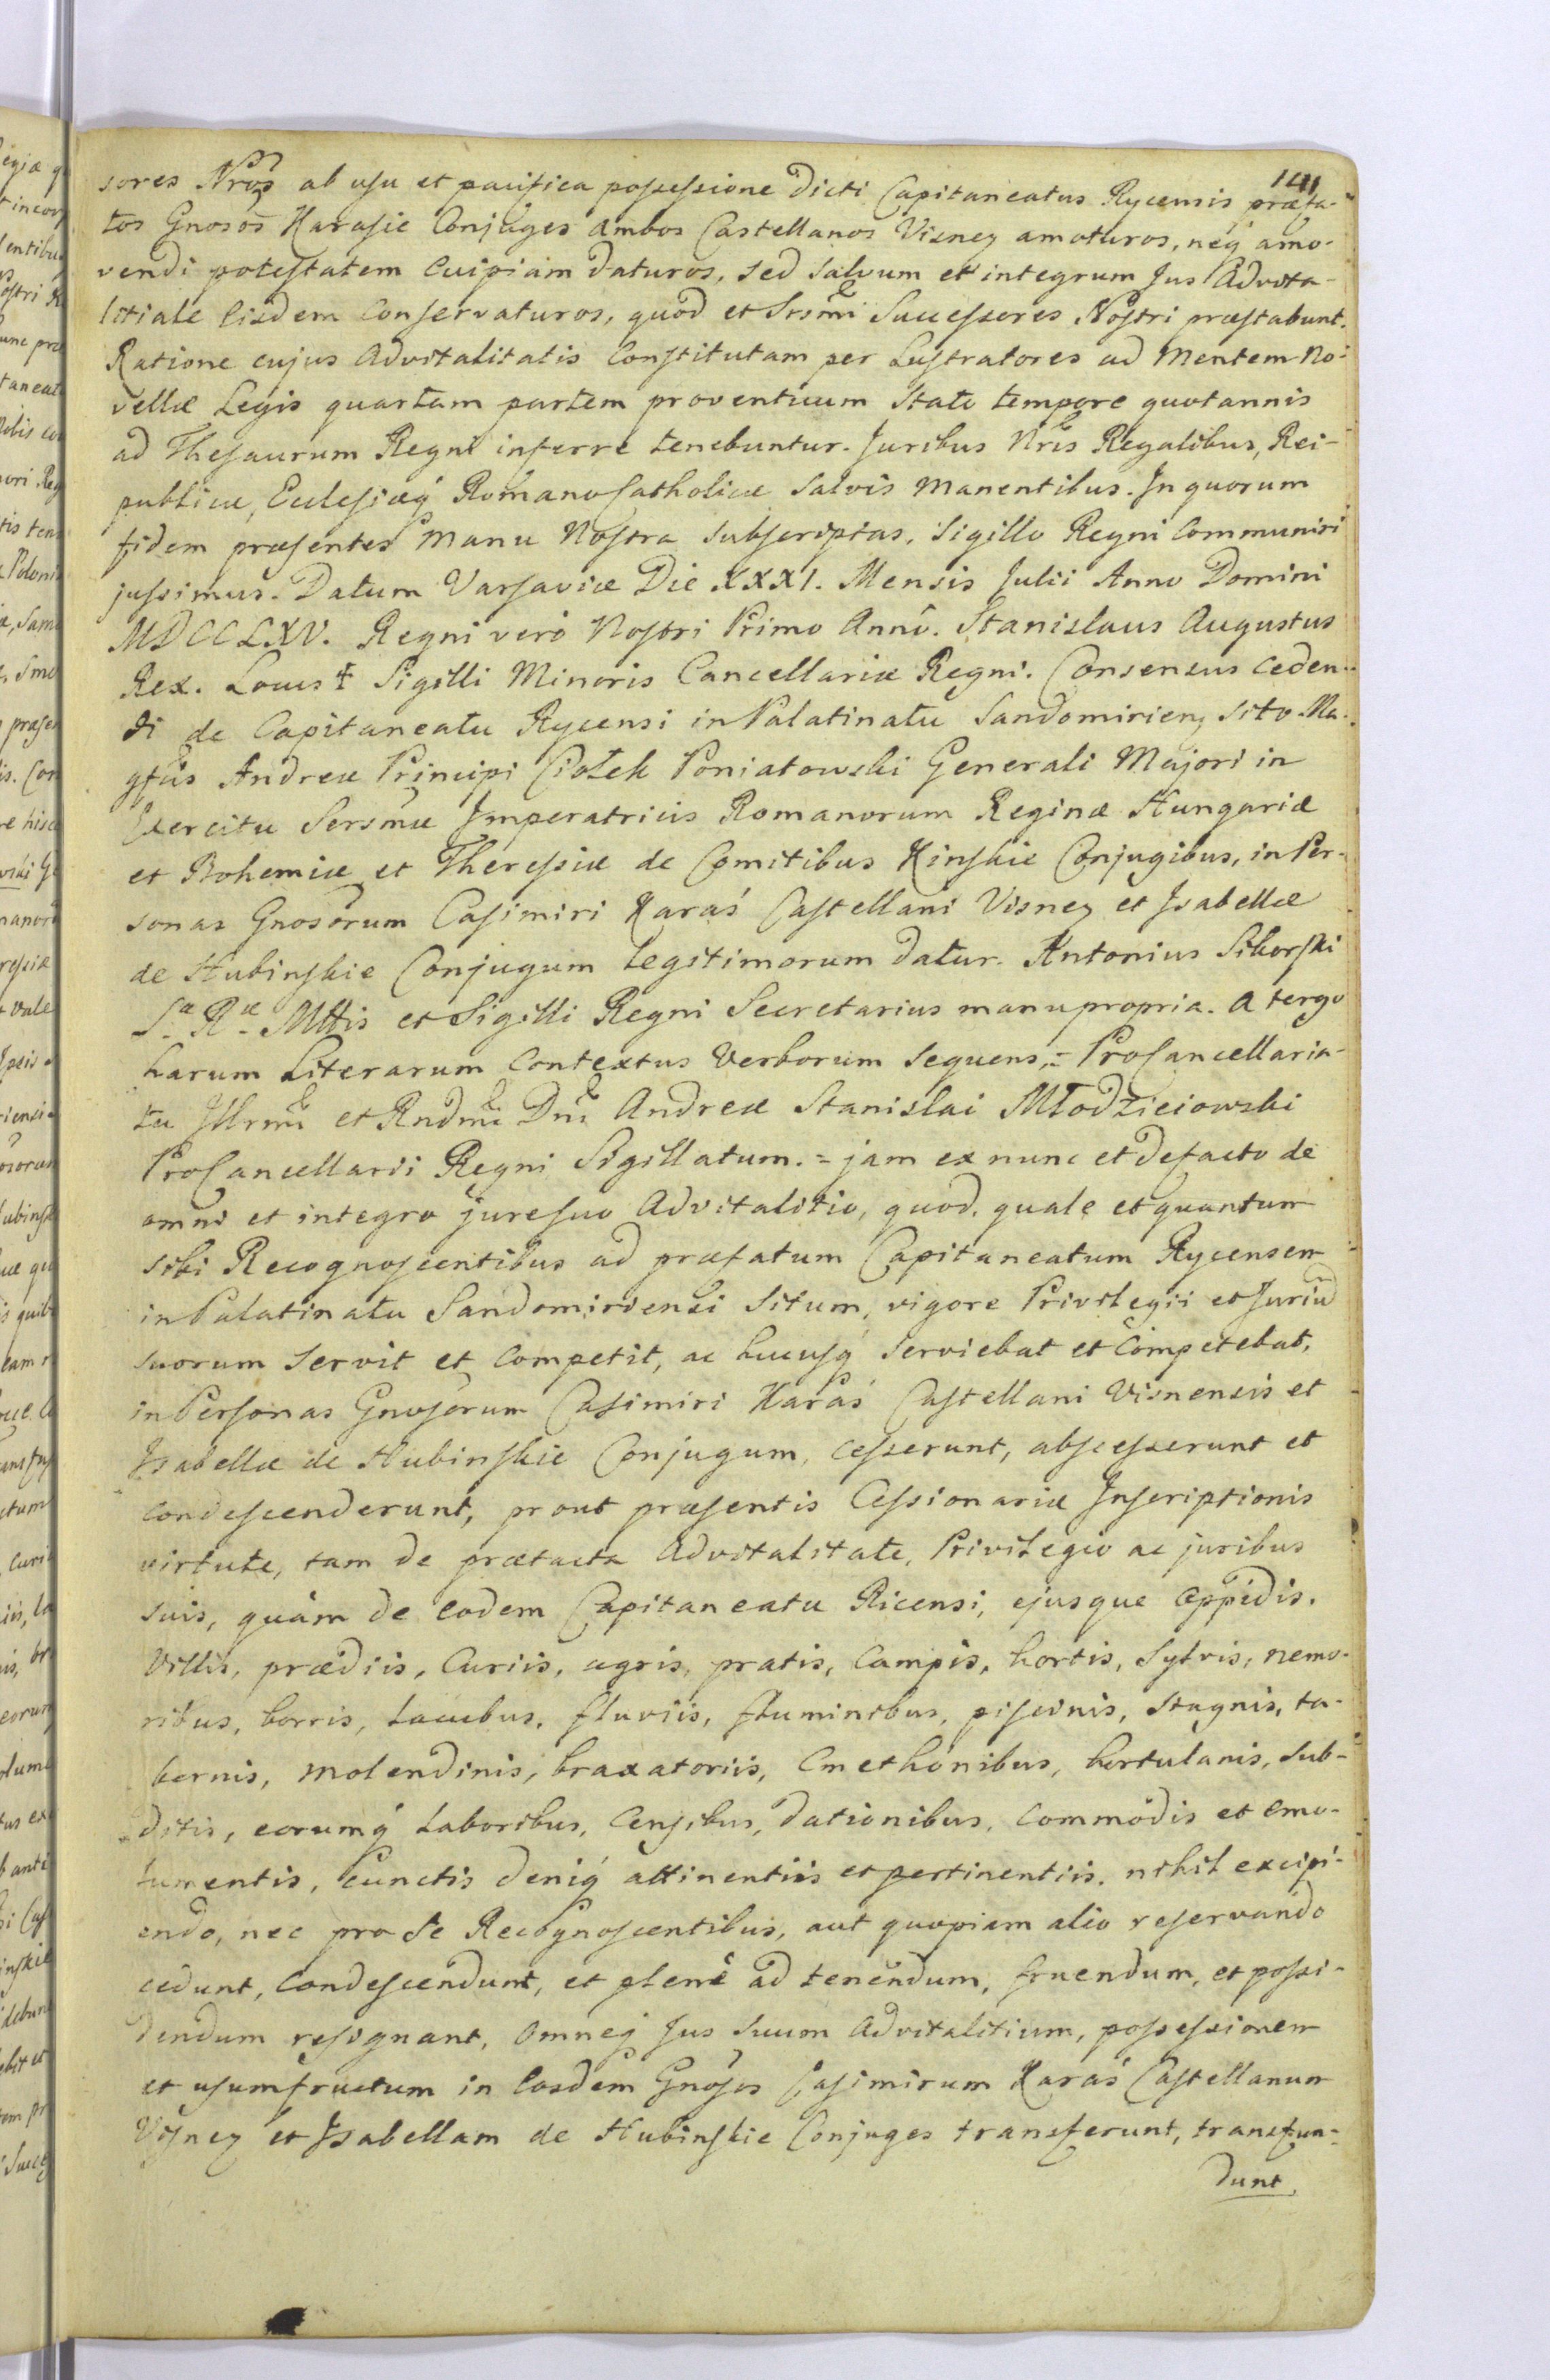 141
sores Nros ab usu et pacifica possessione dicti Capitaneatus Rycensis præfa-
tos Gnosos Karasie Conjuges ambos Castellanos Visnen amoturos, neq amo-
vendi potestatem cuipiam daturos, sed salvum et integrum Jus Advita-
litiale Eisdem Conservaturos, quod et Srsmi Successores Nostri præstabunt.
Ratione cujus Advitalitatis Constitutam per Lustratores ad Mentem No-
vellæ Legis quartam partem proventuum stato tempore quotannis
ad Thesaurum Regni inferre tenebuntur. Juribus Nris Regalibus, Rei-
publicæ, Ecclesiæq Romano Catholicæ salvis manentibus. In quorum
fidem præsentes manu Nostra subscriptas, Sigillo Regni Communiri
jussimus. Datum Varsaviæ Die XXXI. Mensis Julii Anno Domini
MDCCLXV. Regni verò Nostri Primo Annô. Stanislaus Augustus
Rex. Locus ‡ Sigilli Minoris Cancellariæ Regni. Consensus ceden-
di de Capitaneatu Rycensi in Palatinatu Sandomirien, sito Ma-
gfcis Andreæ Principi Ciołek Poniatowski Generali Majori in
Exercitu Sersmæ Imperatricis Romanorum Reginæ Hungariæ
et Bohemiæ et Theressiæ de Comitibus Kinskie Conjugibus, in Per-
sonas Gnosorum Casimiri Karaś Castellani Visnen et Isabellæ
de Hubinskie Conjugum legitimorum datur. Antonius Sikorski
Sæ Ræ Mttis et Sigilli Regni Secretarius manu propria. A tergo
harum Literarum Contextus Verborum sequens = ProCancellaria-
tu Illrmi et Rndmi Dni Andreæ Stanislai Młodzieiowski
ProCancellarii Regni Sigillatum. = jam ex nunc et defacto de
omni et integro jure suo Advitalitio, quod, quale et quantum
sibi Recognoscentibus ad præfatum Capitaneatum Rycensem
in Palatinatu Sandomiriensi situm, vigore Privilegii et Juriũ
suorum servit et competit, ac hucusq serviebat et competebat,
in Personas Gnosorum Casimiri Karaś Castellani Visnensis et
Isabellæ de Hubinskie Conjugum, cesserunt, abscesserunt et
condescenderunt, prout præsentis Cessionariæ Inscriptionis
virtute, tam de prætacta Advitalitate, Privilegio ac juribus
suis, quàm de eodem Capitaneatu Ricensi, ejusque oppidis.
Villis, prædiis, Curiis, agris, pratis, Campis, hortis, Sylvis, nemo-
ribus, borris, lacubus, fluviis, fluminibus, piscinis, stagnis, ta-
bernis, molendinis, braxatoriis, Cmethonibus, hortulanis, sub-
ditis, eorumq laboribus, Censibus, dationibus, commodis et emo-
lumentis, cunctis deniq attinentiis et pertinentiis, nihil excipi-
endo, nec pro se Recognoscentibus, aut quopiam alio reservando
cedunt, condescendunt, et plenè ad tenendum, fruendum, et possi-
dendum resignant, omneq Jus suum Advitalitium, possessionem
et usumfructum in Eosdem Gnosos Casimirum Karaś Castellanum
Visnen et Isabellam de Hubinskie Conjuges transferunt, transfun-
dunt